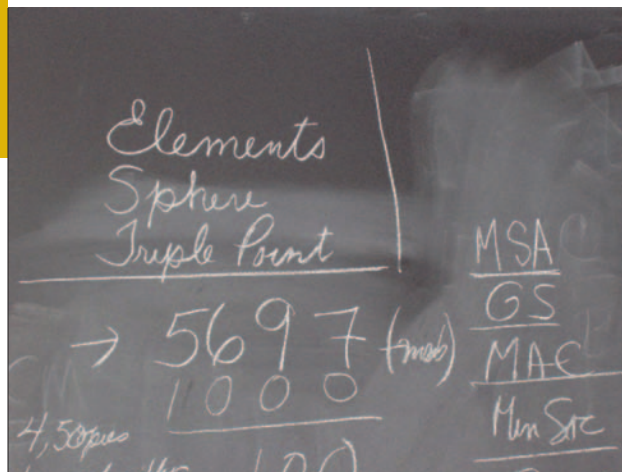 Elements
Sphere
Triple Point
→ 5697
1000
4,50
100
MSA
GS
MAC
Min Soc